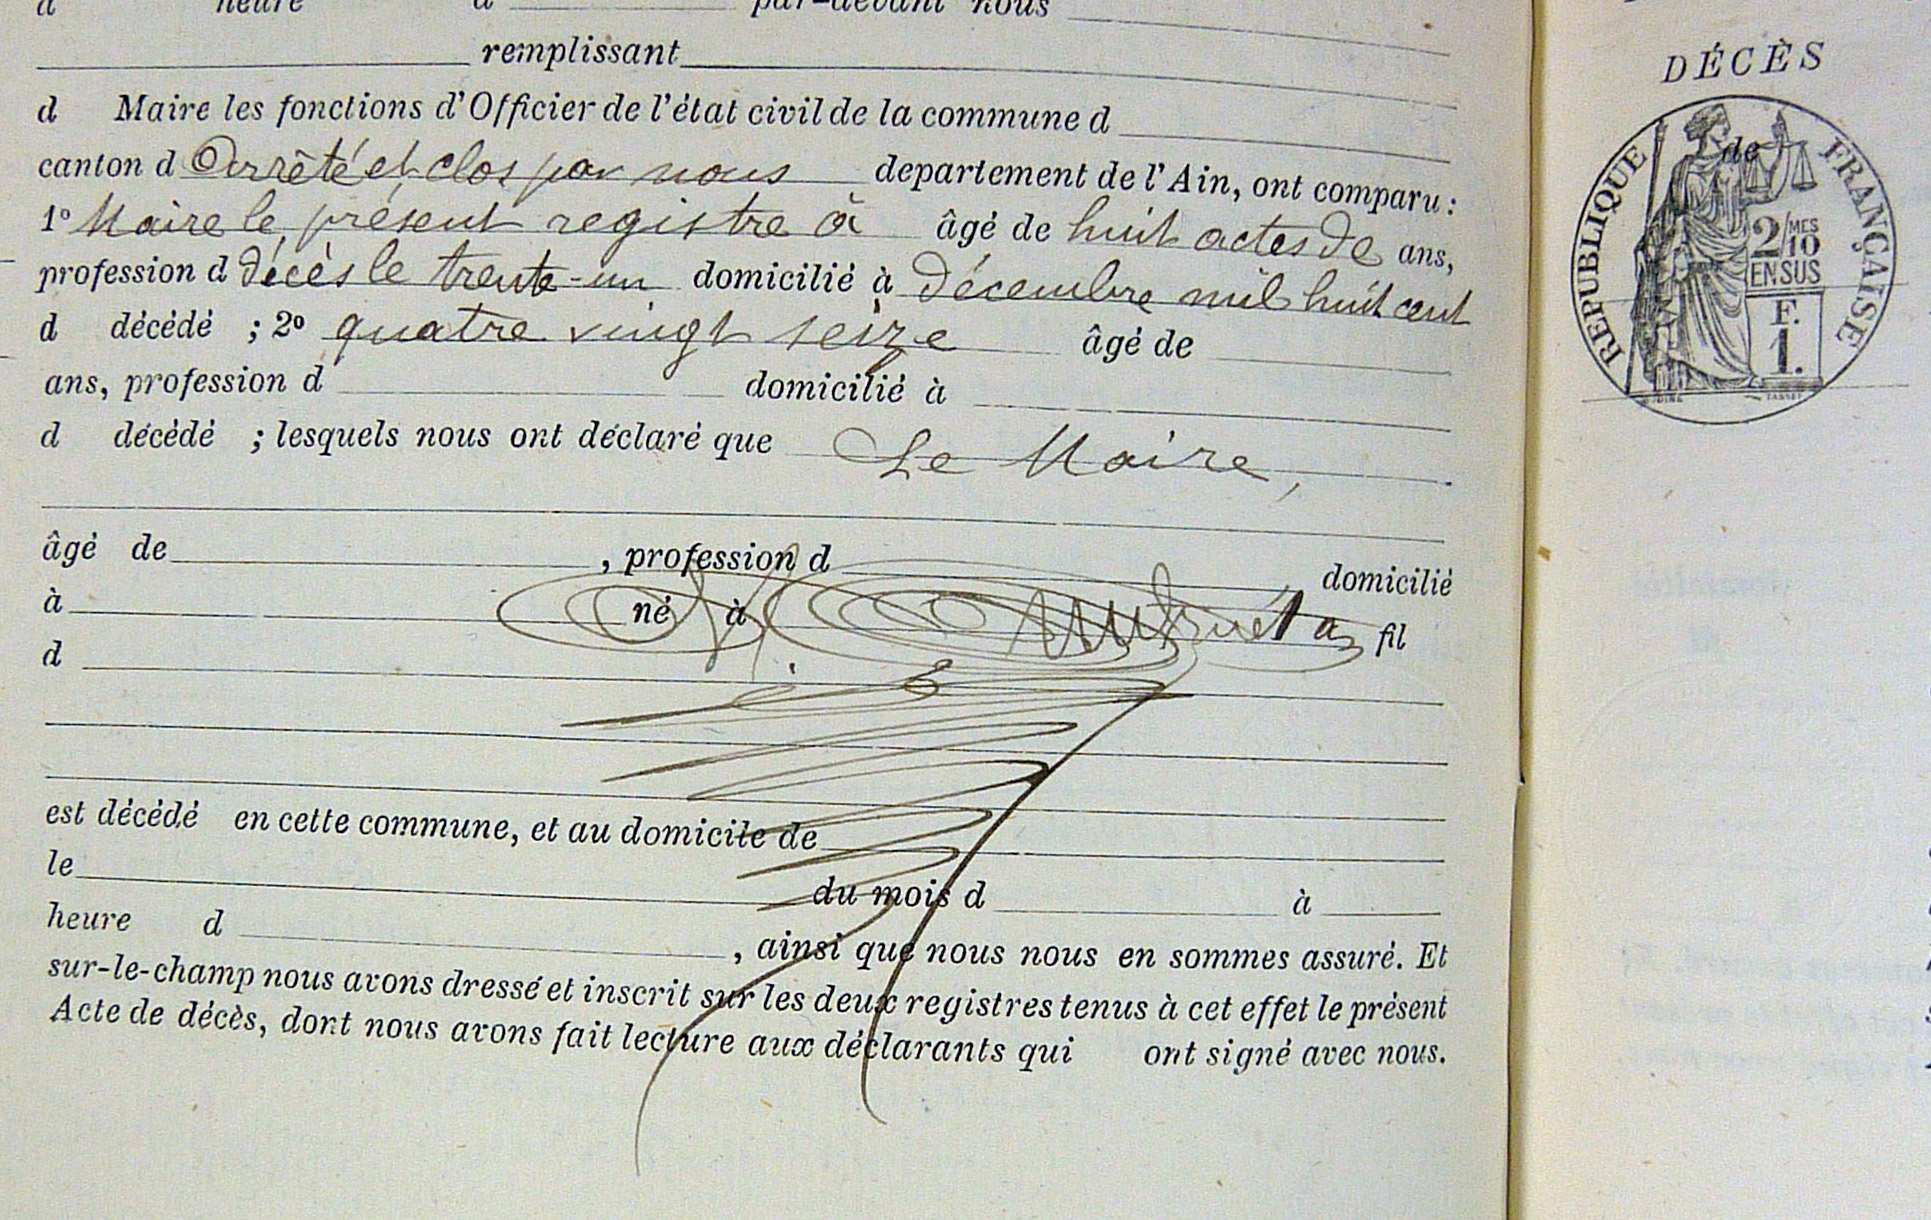 d heure à par-devant nous
remplissant
d Maire les fonctions d'Officier de l'état civil de la commune d
canton d Arrêté et clos par nous departement de l'Ain, ont comparu :
1º Maire le présent registre à âgé de huit actes de ans,
profession d décès le trente-un domicilié à décembre mil huit cent
d décédé ; 2º quatre vingt seize âgé de
ans, profession d domicilié à
d décédé ; lesquels nous ont déclaré que Le Maire,
âgé de , profession d domicilié
à né à fil
d
est décédé en cette commune, et au domicile de
le du mois d à
heure d , ainsi que nous nous en sommes assuré. Et
sur-le-champ nous avons dressé et inscrit sur les deux registres tenus à cet effet le présent
Acte de décès, dont nous avons fait lecture aux déclarants qui ont signé avec nous.
DÉCÈS
de
RÉPUBLIQUE FRANÇAISE
2/MES
10
EN SUS
F.
1.